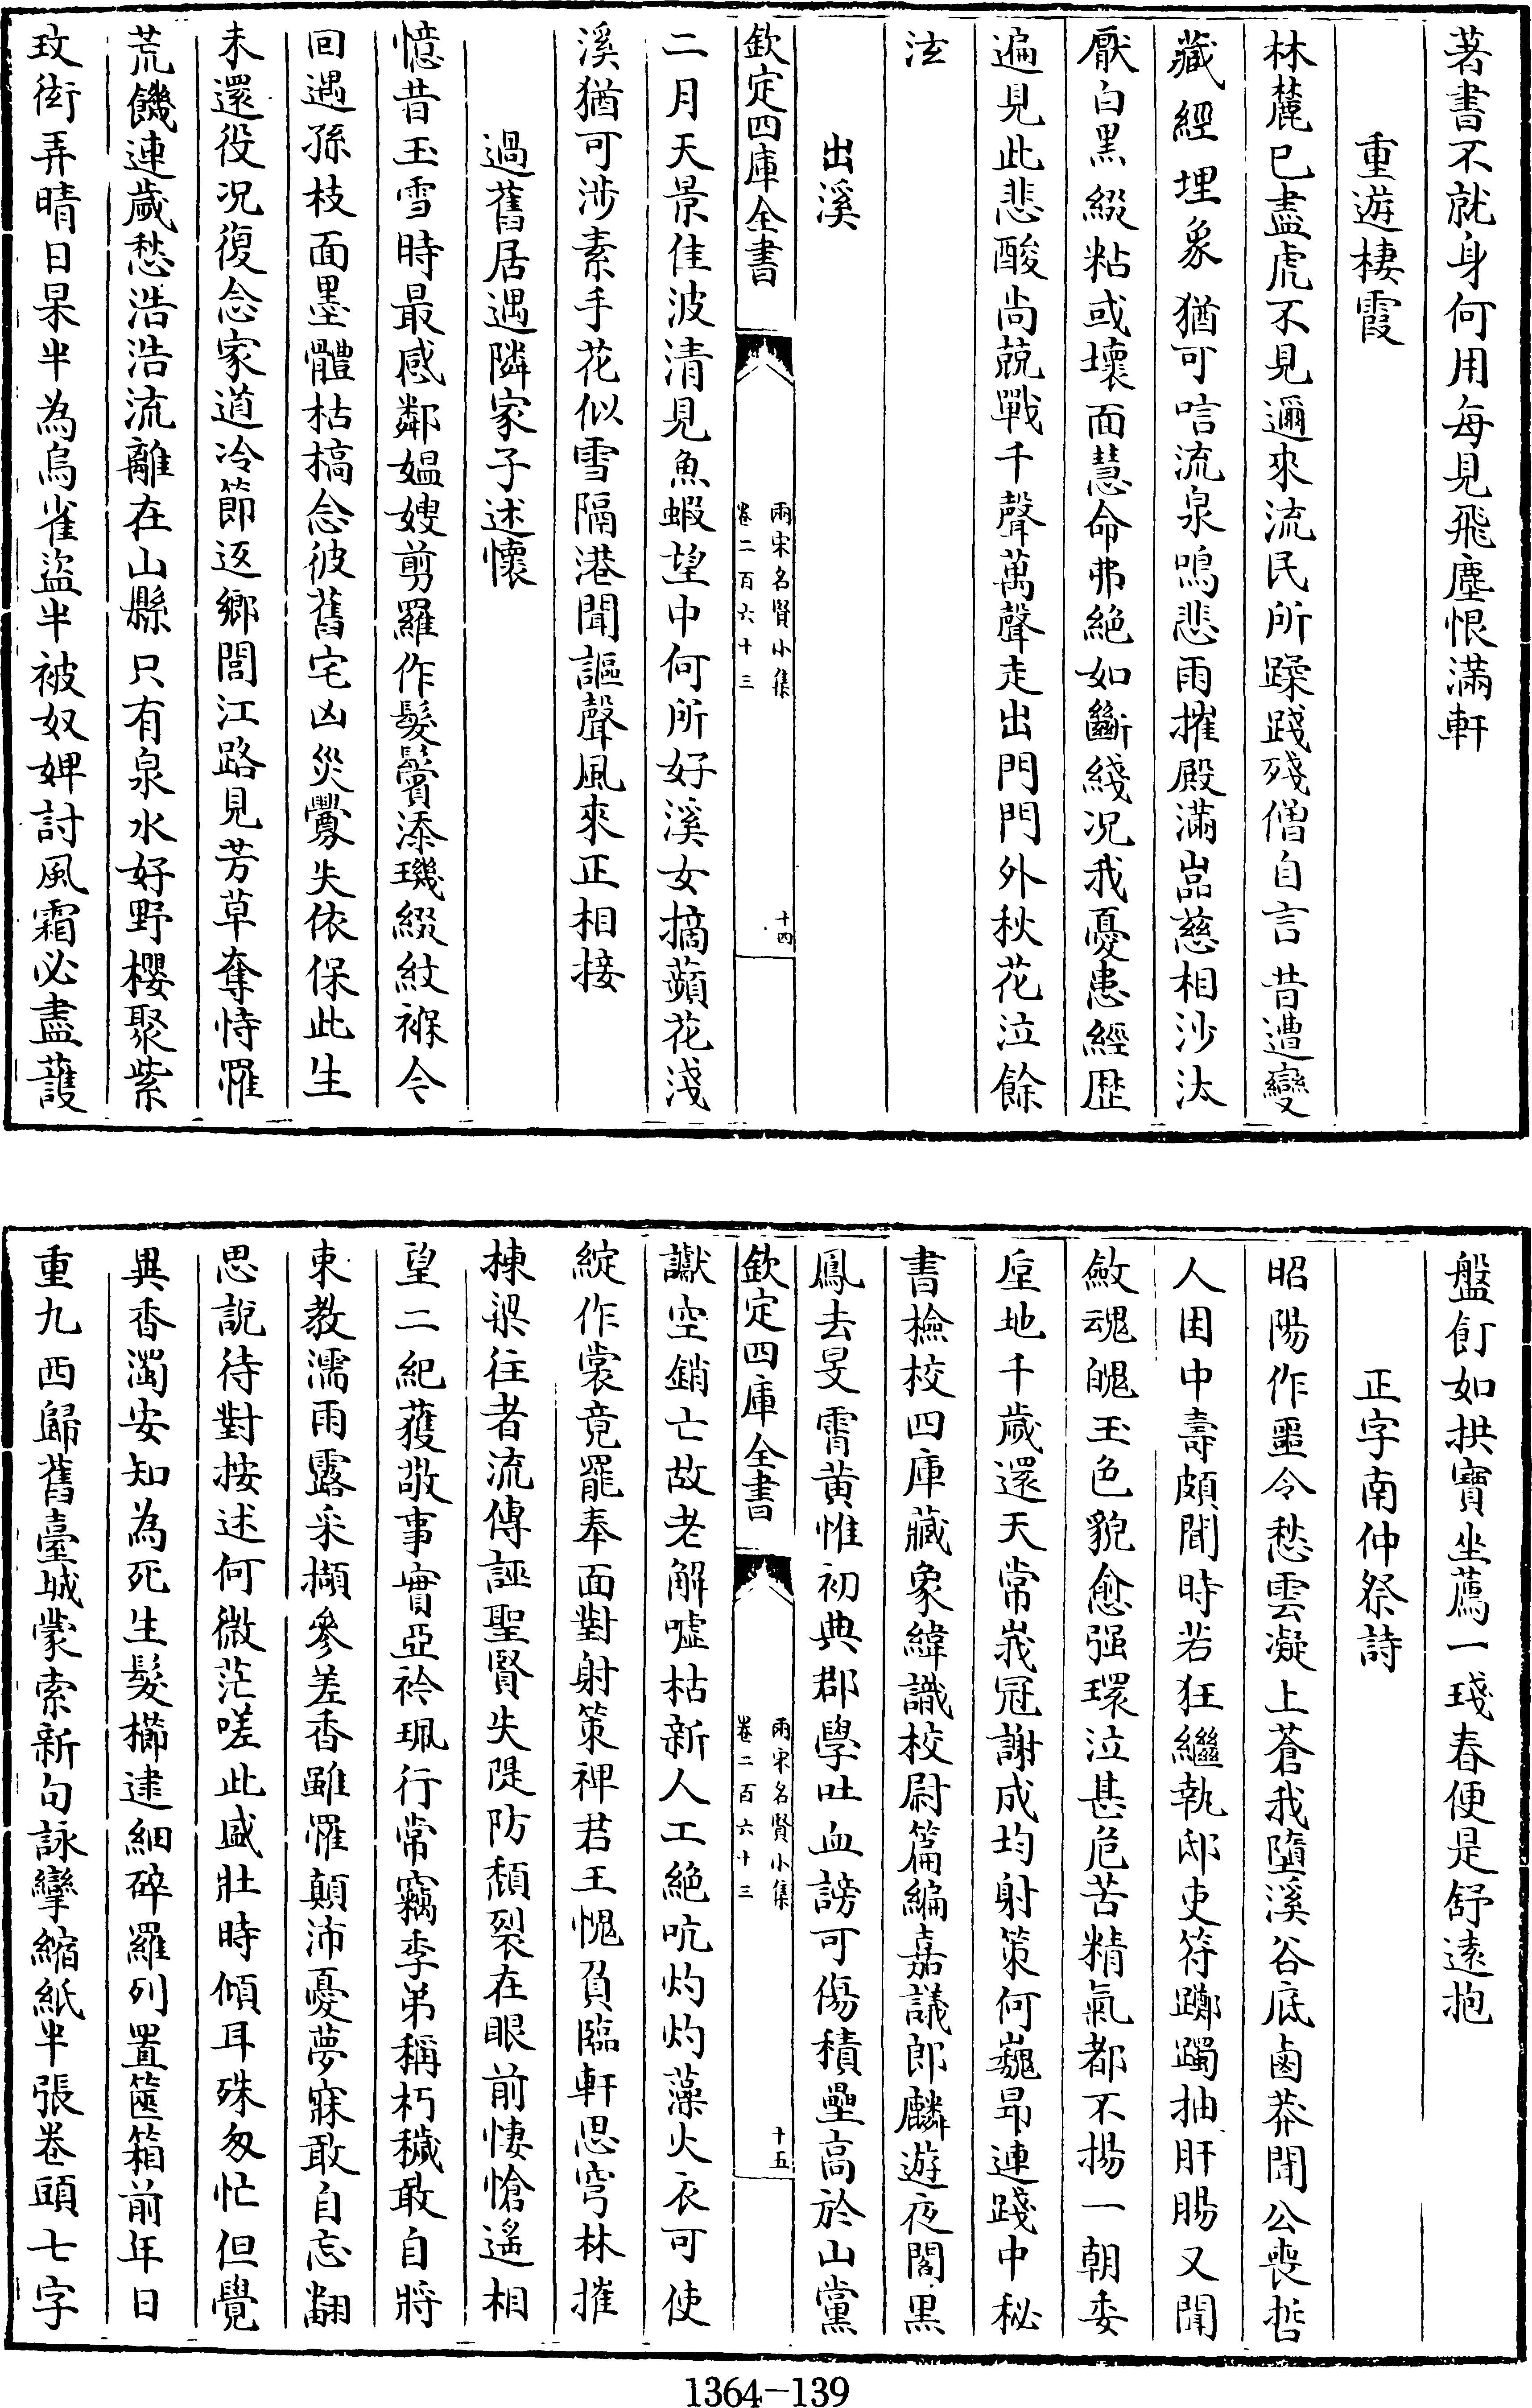 著書不就身何用每見飛塵恨滿軒
重遊棲霞
林麓已盡虎不見邇來流民所蹂踐殘僧自言昔遭變
藏經埋象猶可唁流泉鳴悲雨摧殿滿嵓慈相沙汰
厭白黒綴粘或壞面慧命弗絶如斷綫况我憂患經歴
遍見此悲酸尚兢戰千聲萬聲走出門門外秋花泣餘
泫
出溪
欽定四庫全書
兩宋名賢小集
卷二百六十三
十四
二月天景佳波清見魚蝦望中何所好溪女摘蘋花淺
溪猶可涉素手花似雪隔港聞謳聲風來正相接
過舊居遇隣家子述懷
憶昔玉雪時最感鄰媪嫂剪羅作髮鬢添璣綴紋褓今
回遇孫枝面墨體枯槁念彼舊宅凶災釁失依保此生
未還役况復念家道冷節返鄉閭江路見芳草奪恃罹
荒饑連歲愁浩浩流離在山縣只有泉水好野櫻聚紫
玟街弄晴日杲半為烏雀盜半被奴婢討風霜必盡䕶
盤飣如拱寶坐薦一琖春便是舒遠抱
正字南仲祭詩
昭陽作噩令愁雲凝上蒼我墮溪谷底鹵莽聞公喪哲
人困中壽頗聞時若狂繼執邸吏符躑躅抽肝腸又聞
斂魂魄玉色貌愈强環泣甚危苦精氣都不揚一朝委
垕地千歲還天常峩冠謝成均射策何巍昻連踐中秘
書檢校四庫藏象緯識校尉篇編嘉議郎麟遊夜閣黒
鳳去旻霄黄惟初典郡學吐血謗可傷積壘高於山黨
欽定四庫全書
兩宋名賢小集
卷二百六十三
十五
讞空銷亡故老解噓枯新人工絶吭灼灼藻火衣可使
綻作裳竟罷奉面對射策裨君王愧負臨軒思穹林摧
棟梁往者流傳誣聖賢失隄防頽裂在眼前悽愴遙相
望二紀獲敬事實亞衿珮行常竊季弟稱朽穢敢自將
東教濡雨露采擷參差香雖罹顛沛憂夢寐敢自忘翻
思說待對按述何微茫嗟此盛壯時傾耳殊匆忙但覺
異香濁安知為死生髮櫛逮細碎羅列置篋箱前年日
重九西歸舊臺城蒙索新句詠攣縮紙半張卷頭七字
1364-139